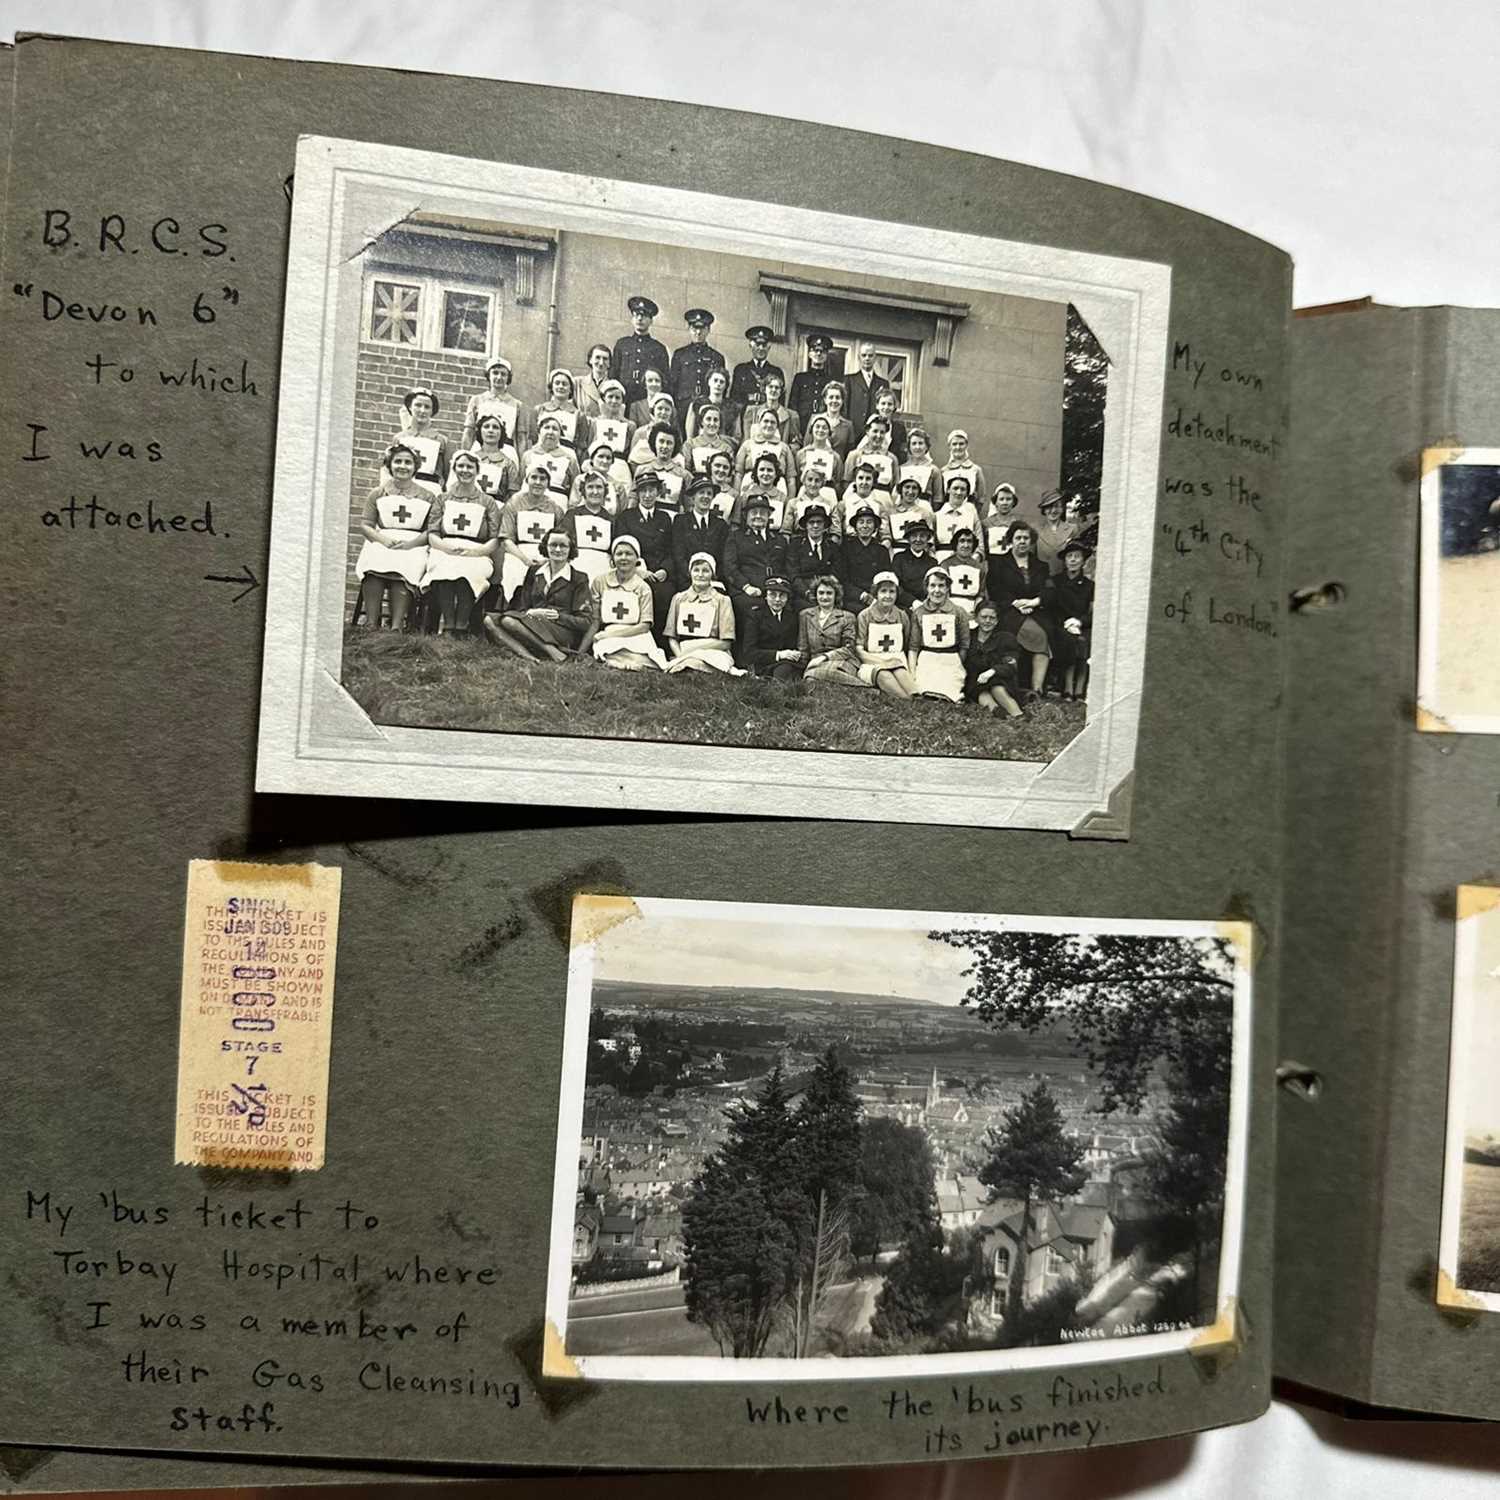 B. R. C. S.
"Devon 6"
to which
I was
attached.
My own
detachment
was the
"4th City
of London."
THIS TICKET IS
ISSUED SUBJECT
TO THE RULES AND
REGULATIONS OF
THE COMPANY AND
MUST BE SHOWN
ON DEMAND AND IS
NOT TRANSFERABLE
STAGE
7
THIS TICKET IS
ISSUED SUBJECT
TO THE RULES AND
REGULATIONS OF
THE COMPANY AND
My 'bus ticket to
Torbay Hospital where
I was a member of
their Gas Cleansing
Staff.
Newton Abbot
Where the 'bus finished
its journey.